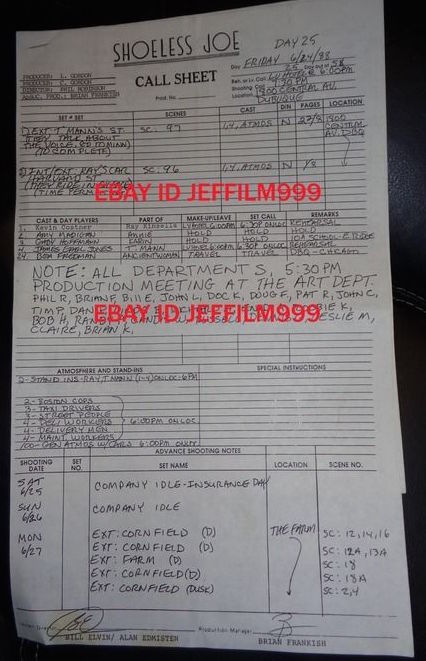 SHOELESS JOE
DAY 25
PRODUCER: L. GORDON
PRODUCER: C. GORDON
DIRECTOR: PHIL ROBINSON
ASSOC. PROD.: BRIAN FRANKISH
CALL SHEET
Prod. No.
Day FRIDAY 6/24/88
25 Day out of
6:00PM
Shooting
Location 1800 CENTRAL AV.
DUBUQUE
SET # SET
SCENES
CAST
D/N
PAGES
LOCATION
EXT T. MANN'S ST.
(THEY TALK ABOUT
THE VOICE, RD TO MINN)
(TO COMPLETE)
SC. 97
1,4, ATMOS
N
2 7/8
1800
CENTRAL
AV. DBQ
INT/EXT. RAY'S CAR
(TIME PERM
SC. 96
1,4, ATMOS
N
1/8
EBAY ID JEFFILM999
CAST & DAY PLAYERS
PART OF
MAKE-UP/LEAVE
SET CALL
REMARKS
1. Kevin Costner
Ray Kinsella
LV HOTEL 6:00PM
6:30P ONLOC
REHEARSAL
2. AMY MADIGAN
Annie
HOLD
HOLD
HOLD
3. GABY HOFFMANN
KARIN
HOLD
HOLD
4. JAMES EARL JONES
T. MANN
6:30P ONLOC
REHEARSAL
TRAVEL
TRAVEL
DBQ - CHICAGO
NOTE: ALL DEPARTMENTS, 5:30PM
PRODUCTION MEETING AT THE ART DEPT.
PHIL R, BRIAN F, BILL E, JOHN L, DOC K, DOUG F, PAT R, JOHN C,
TIM P, DAN
EBAY ID JEFFILM999
BOB H,
LESLIE M,
CLAIRE, BRIAN K,
ATMOSPHERE AND STAND-INS
SPECIAL INSTRUCTIONS
2 - STAND INS - RAY, T. MANN (1-4) ONLOC - 6PM
2 - BOSTON COPS
3 - TAXI DRIVERS
3 - STREET PEOPLE
4 - DELI WORKERS
6:00PM ON LOC
4 - DELIVERY MEN
4 - MAINT. WORKERS
100 - GEN ATMOS W/CARS 6:00PM ONLY
ADVANCE SHOOTING NOTES
SHOOTING DATE
SET NO.
SET NAME
LOCATION
SCENE NO.
SAT 6/25
COMPANY IDLE - INSURANCE DAY
SUN 6/26
COMPANY IDLE
MON 6/27
EXT: CORNFIELD (D)
THE FARM
SC: 12, 14, 16
EXT: CORNFIELD (D)
SC: 12A, 13A
EXT: FARM (D)
SC: 18
EXT: CORNFIELD (D)
SC: 18A
EXT: CORNFIELD (DUSK)
SC: 2, 4
BILL ELVIN/ ALAN EDMISTEN
Production Manager
BRIAN FRANKISH